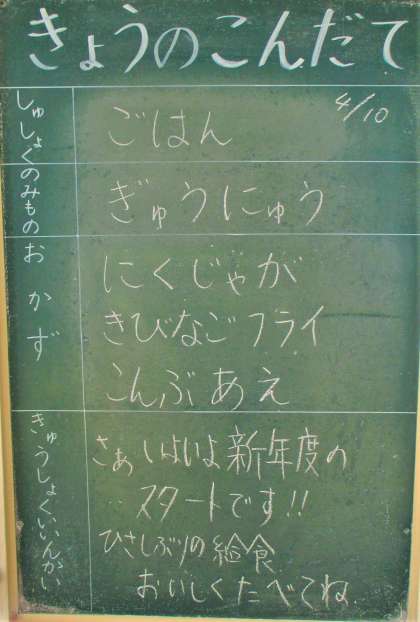 きょうのこんだて
4/10
しゅしょく
ごはん
のみもの
ぎゅうにゅう
おかず
にくじゃが
きびなごフライ
こんぶあえ
きゅうしょくいいんかい
さぁ いよいよ新年度の
スタートです!!
ひさしぶりの給食
おいしくたべてね